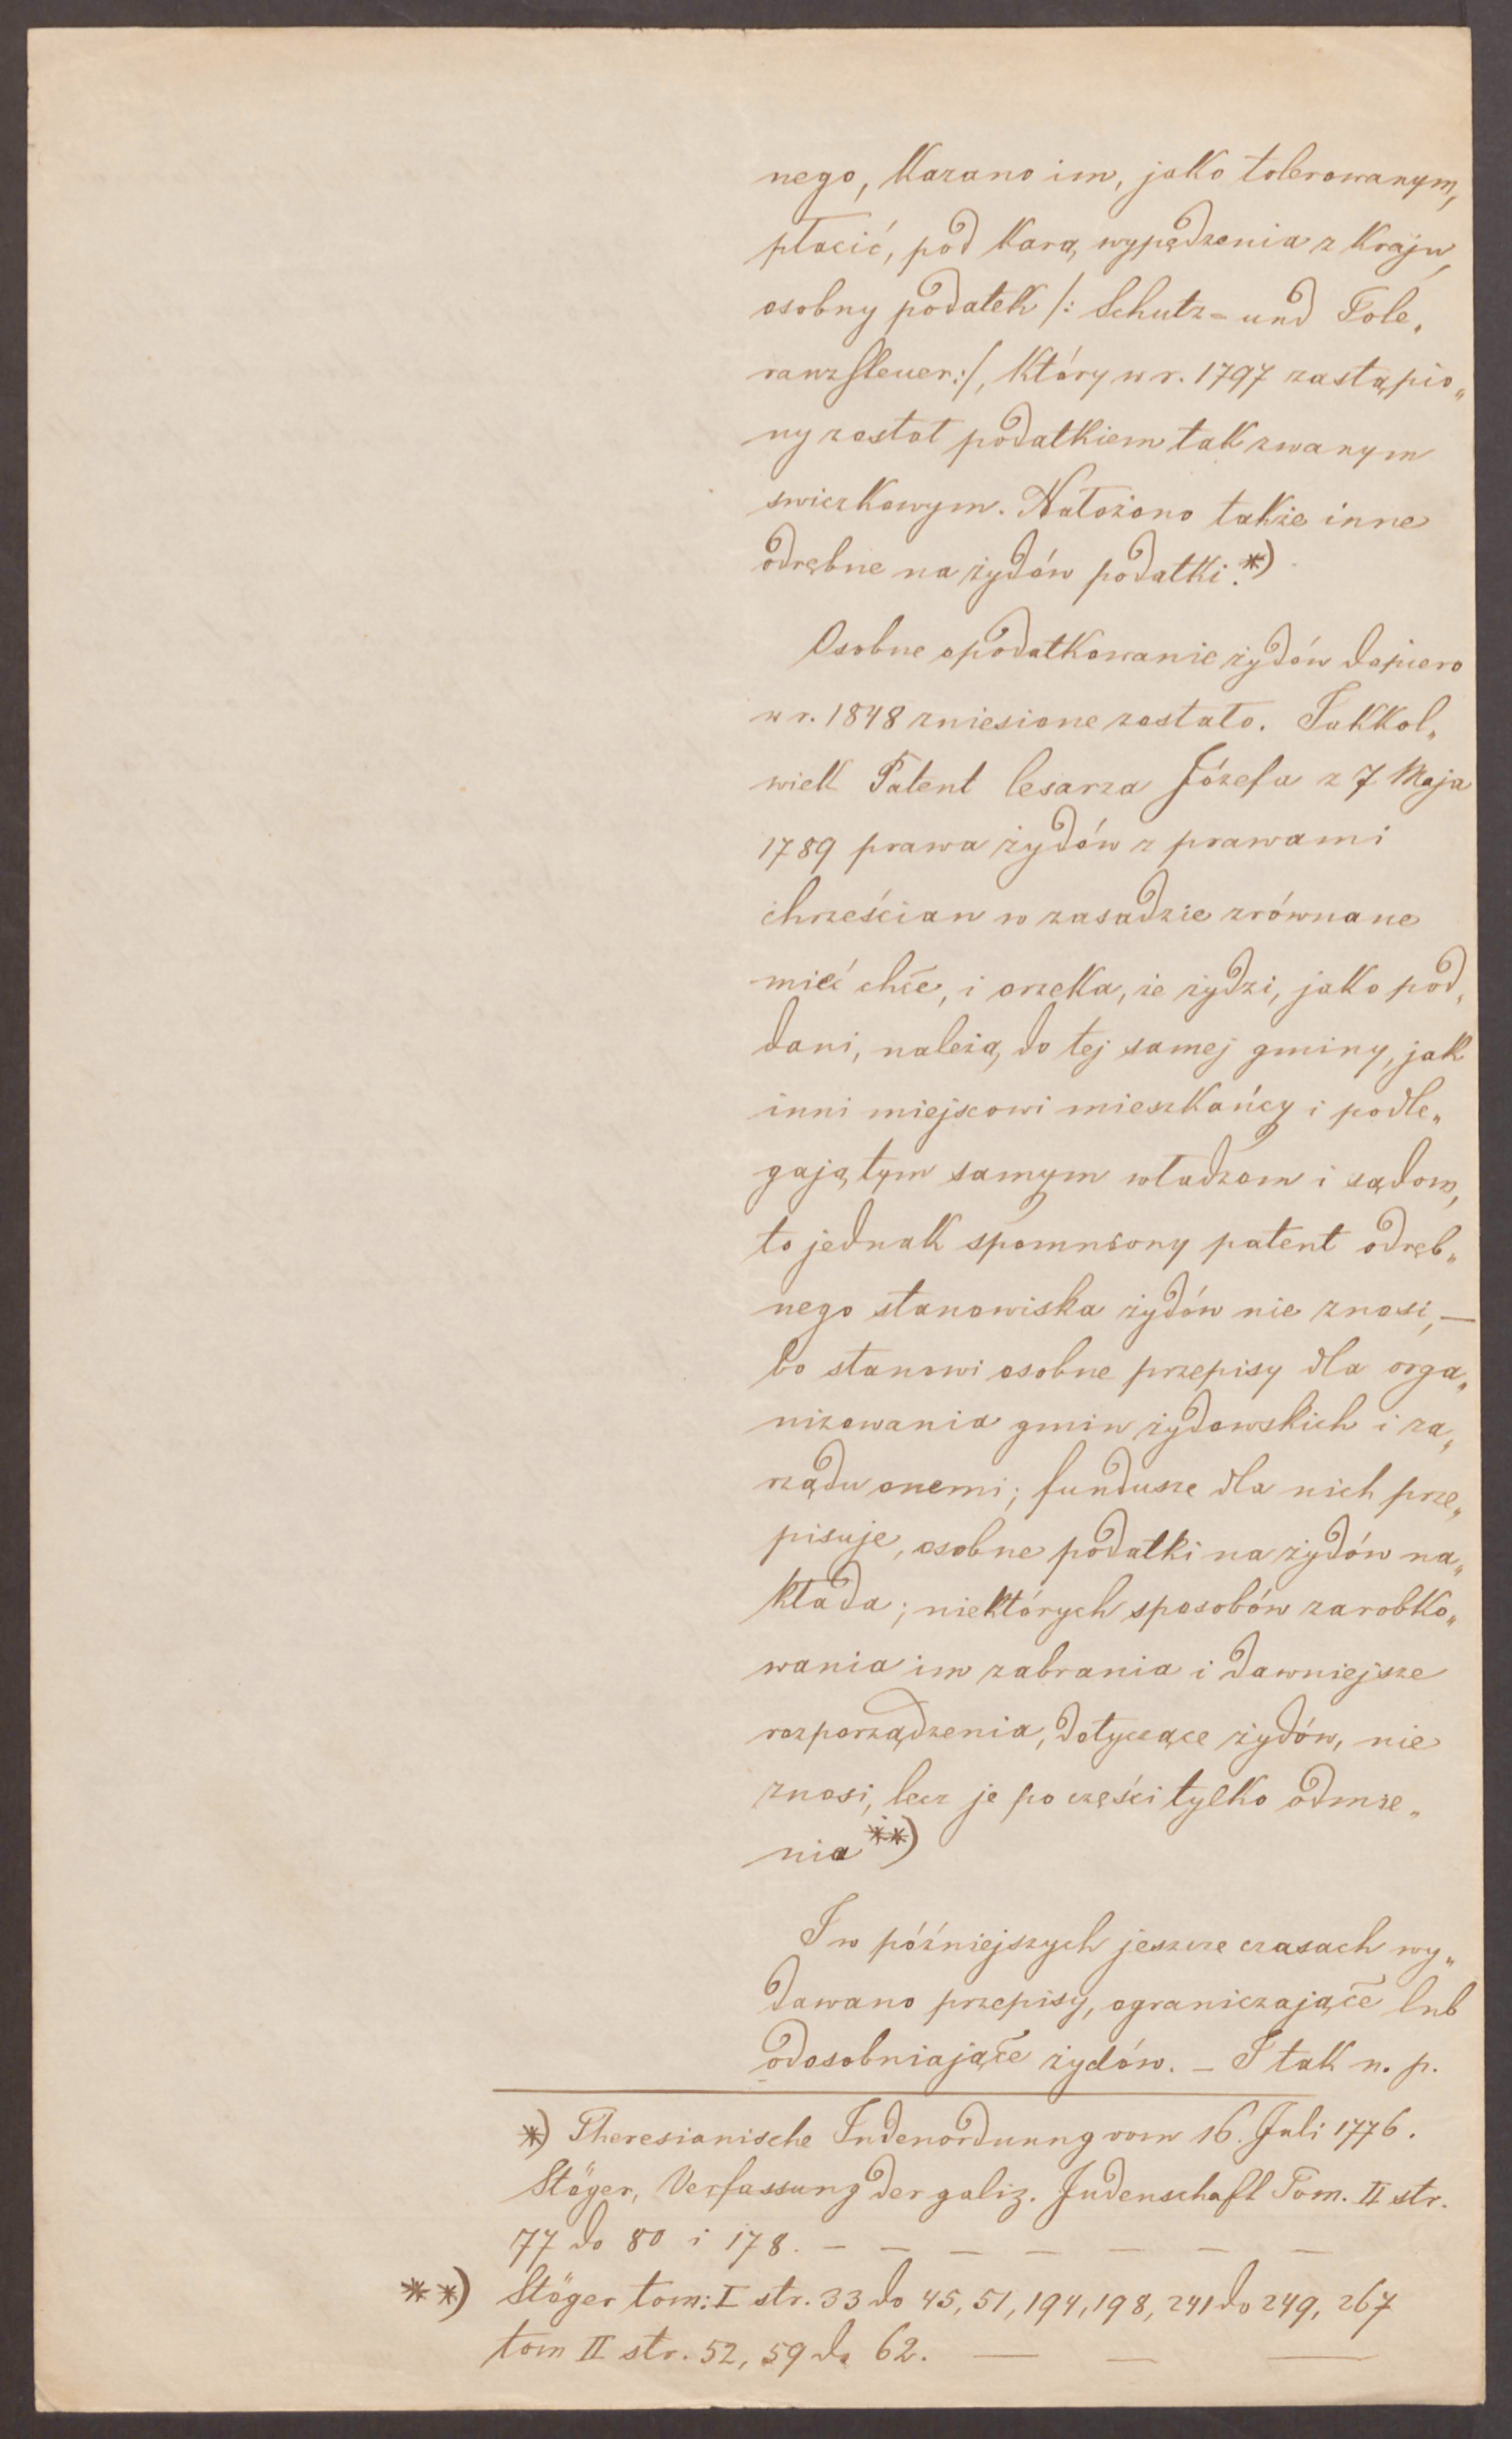 nego, kazano im, jako tolerowanym,
płacić, pod karą wypędzenia z kraju,
osobny podatek /: Schutz- und Tole„
ranzsteuer:/, który w r. 1797 zastąpio„
ny został podatkiem tak zwanym
świeczkowym. Nałożono także inne
odrębne na żydów podatki.*)
Osobne opodatkowanie żydów dopiero
w r. 1848 zniesione zostało. Jakkol„
wiek Patent Cesarza Józefa z 7 Maja
1789 prawa żydów z prawami
chrześcian w zasadzie zrównane
mieć chce, i orzeka, że żydzi, jako pod„
dani, należą do tej samej gminy, jak
inni miejscowi mieszkańcy i podle„
gają tym samym władzom i sądom,
to jednak spomniony patent odręb„
nego stanowiska żydów nie znosi, —
bo stanowi osobne przepisy dla orga„
nizowania gmin żydowskich i za„
rządu onemi; fundusze dla nich prze„
pisuje, osobne podatki na żydów na„
kłada; niektórych sposobów zarobko„
wania im zabrania i dawniejsze
rozporządzenia, dotyczące żydów, nie
znosi, lecz je po części tylko odmie„
nia **)
I w późniejszych jeszcze czasach wy„
dawano przepisy, ograniczające lub
odosobniające żydów. — I tak n. p.
*) Theresianische Judenordnung vom 16. Juli 1776.
Stöger, Verfassung der galiz. Judenschaft Tom. II str.
77 do 80 i 178. — — — — — — —
**) Stöger tom: I str. 33 do 45, 51, 194, 198, 241 do 249, 267
tom II str. 52, 59 do 62. — — —